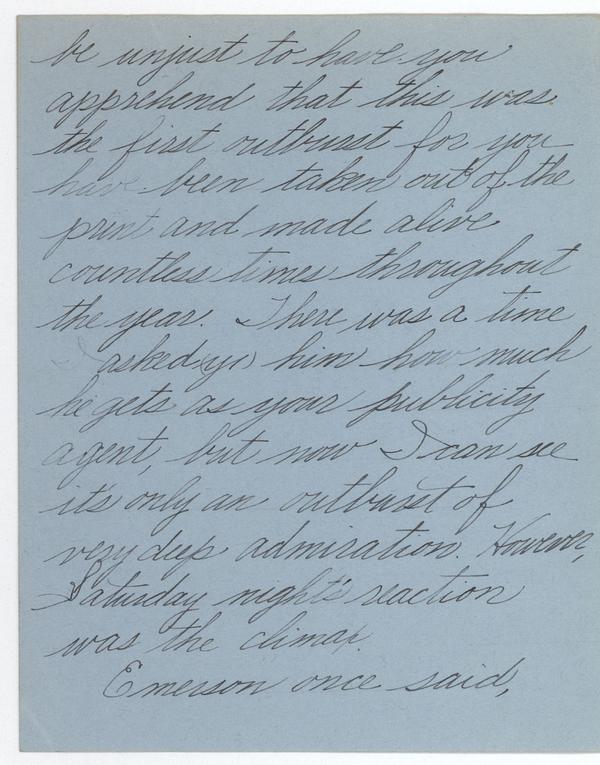 be unjust to have you
apprehend that this was
the first outburst for you
have been taken out of the
print and made alive
countless times throughout
the year. There was a time
I asked him how much
he gets as your publicity
agent, but now I can see
it's only an outburst of
very deep admiration. However,
Saturday night's reaction
was the climax.
Emerson once said,